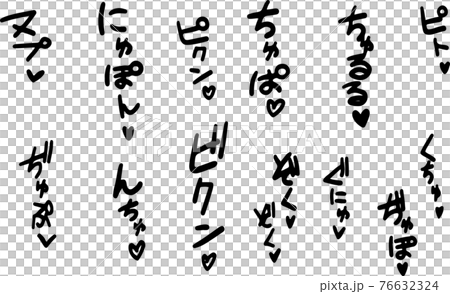 ヌぺ♡
にゅぽん♥
ピクン♡
ちゅぽ♡
ちゅるる♥
ピト♥
ぢゅる♡
んちゅ♡
ビクン♡
ぞくぞく♥
ぐにゅ♥
くちゅ♥
ぢゅぽ♡
PIXTA
pixta.jp - 76632324